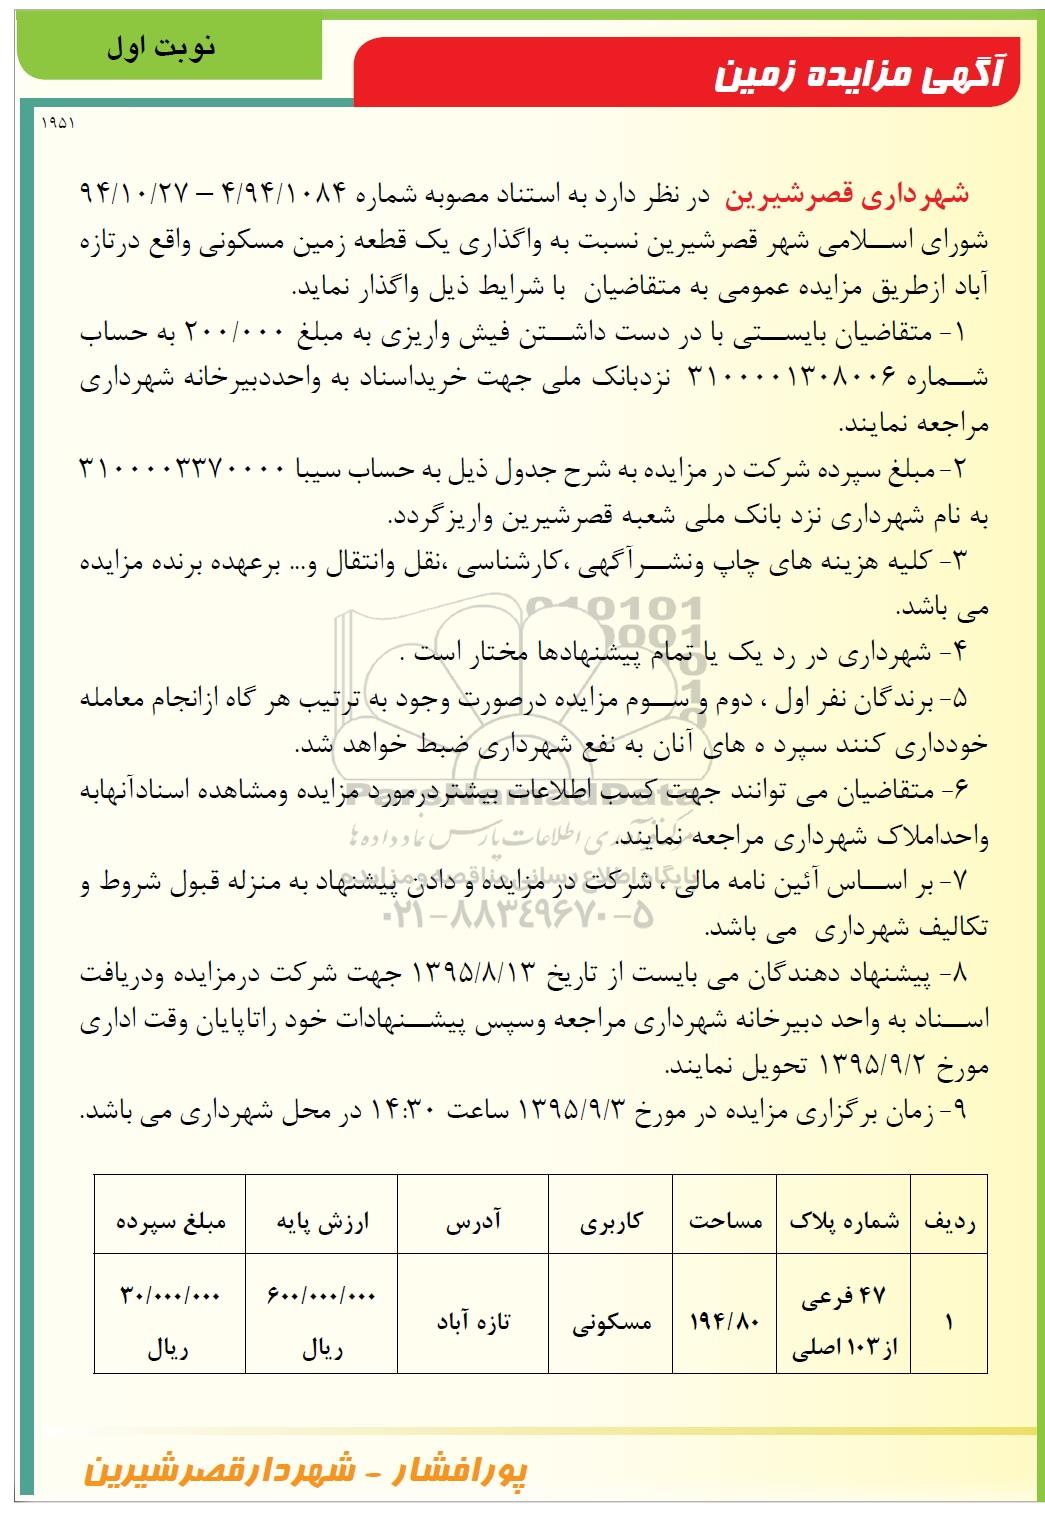 نوبت اول
آگهی مزایده زمین
۱۹۵۱
شهرداری قصرشیرین در نظر دارد به استناد مصوبه شماره ۴/۹۴/۱۰۸۴ – ۹۴/۱۰/۲۷
شورای اسلامی شهر قصرشیرین نسبت به واگذاری یک قطعه زمین مسکونی واقع درتازه
آباد ازطریق مزایده عمومی به متقاضیان با شرایط ذیل واگذار نماید.
۱- متقاضیان بایستی با در دست داشتن فیش واریزی به مبلغ ۲۰۰/۰۰۰ به حساب
شماره ۳۱۰۰۰۰۱۳۰۸۰۰۶ نزدبانک ملی جهت خریداسناد به واحددبیرخانه شهرداری
مراجعه نمایند.
۲- مبلغ سپرده شرکت در مزایده به شرح جدول ذیل به حساب سیبا ۳۱۰۰۰۰۳۳۷۰۰۰۰
به نام شهرداری نزد بانک ملی شعبه قصرشیرین واریزگردد.
۳- کلیه هزینه های چاپ ونشرآگهی ،کارشناسی ،نقل وانتقال و... برعهده برنده مزایده
می باشد.
۴- شهرداری در رد یک یا تمام پیشنهادها مختار است .
۵- برندگان نفر اول ، دوم و سوم مزایده درصورت وجود به ترتیب هر گاه ازانجام معامله
خودداری کنند سپرد ه های آنان به نفع شهرداری ضبط خواهد شد.
۶- متقاضیان می توانند جهت کسب اطلاعات بیشتردرمورد مزایده ومشاهده اسنادآنهابه
واحداملاک شهرداری مراجعه نمایند.
۷- بر اساس آئین نامه مالی ، شرکت در مزایده و دادن پیشنهاد به منزله قبول شروط و
تکالیف شهرداری می باشد.
۸- پیشنهاد دهندگان می بایست از تاریخ ۱۳۹۵/۸/۱۳ جهت شرکت درمزایده ودریافت
اسناد به واحد دبیرخانه شهرداری مراجعه وسپس پیشنهادات خود راتاپایان وقت اداری
مورخ ۱۳۹۵/۹/۲ تحویل نمایند.
۹- زمان برگزاری مزایده در مورخ ۱۳۹۵/۹/۳ ساعت ۱۴:۳۰ در محل شهرداری می باشد.
ParsNamadData
مرکز فرآوری اطلاعات پارس نماد داده ها
پایگاه اطلاع رسانی مناقصه و مزایده
۰۲۱-۸۸۳۴۹۶۷۰-۵
ردیف شماره پلاک مساحت کاربری آدرس ارزش پایه مبلغ سپرده
۱ ۴۷ فرعی از ۱۰۳ اصلی ۱۹۴/۸۰ مسکونی تازه آباد ۶۰۰/۰۰۰/۰۰۰ ریال ۳۰/۰۰۰/۰۰۰ ریال
پورافشار - شهردارقصرشیرین